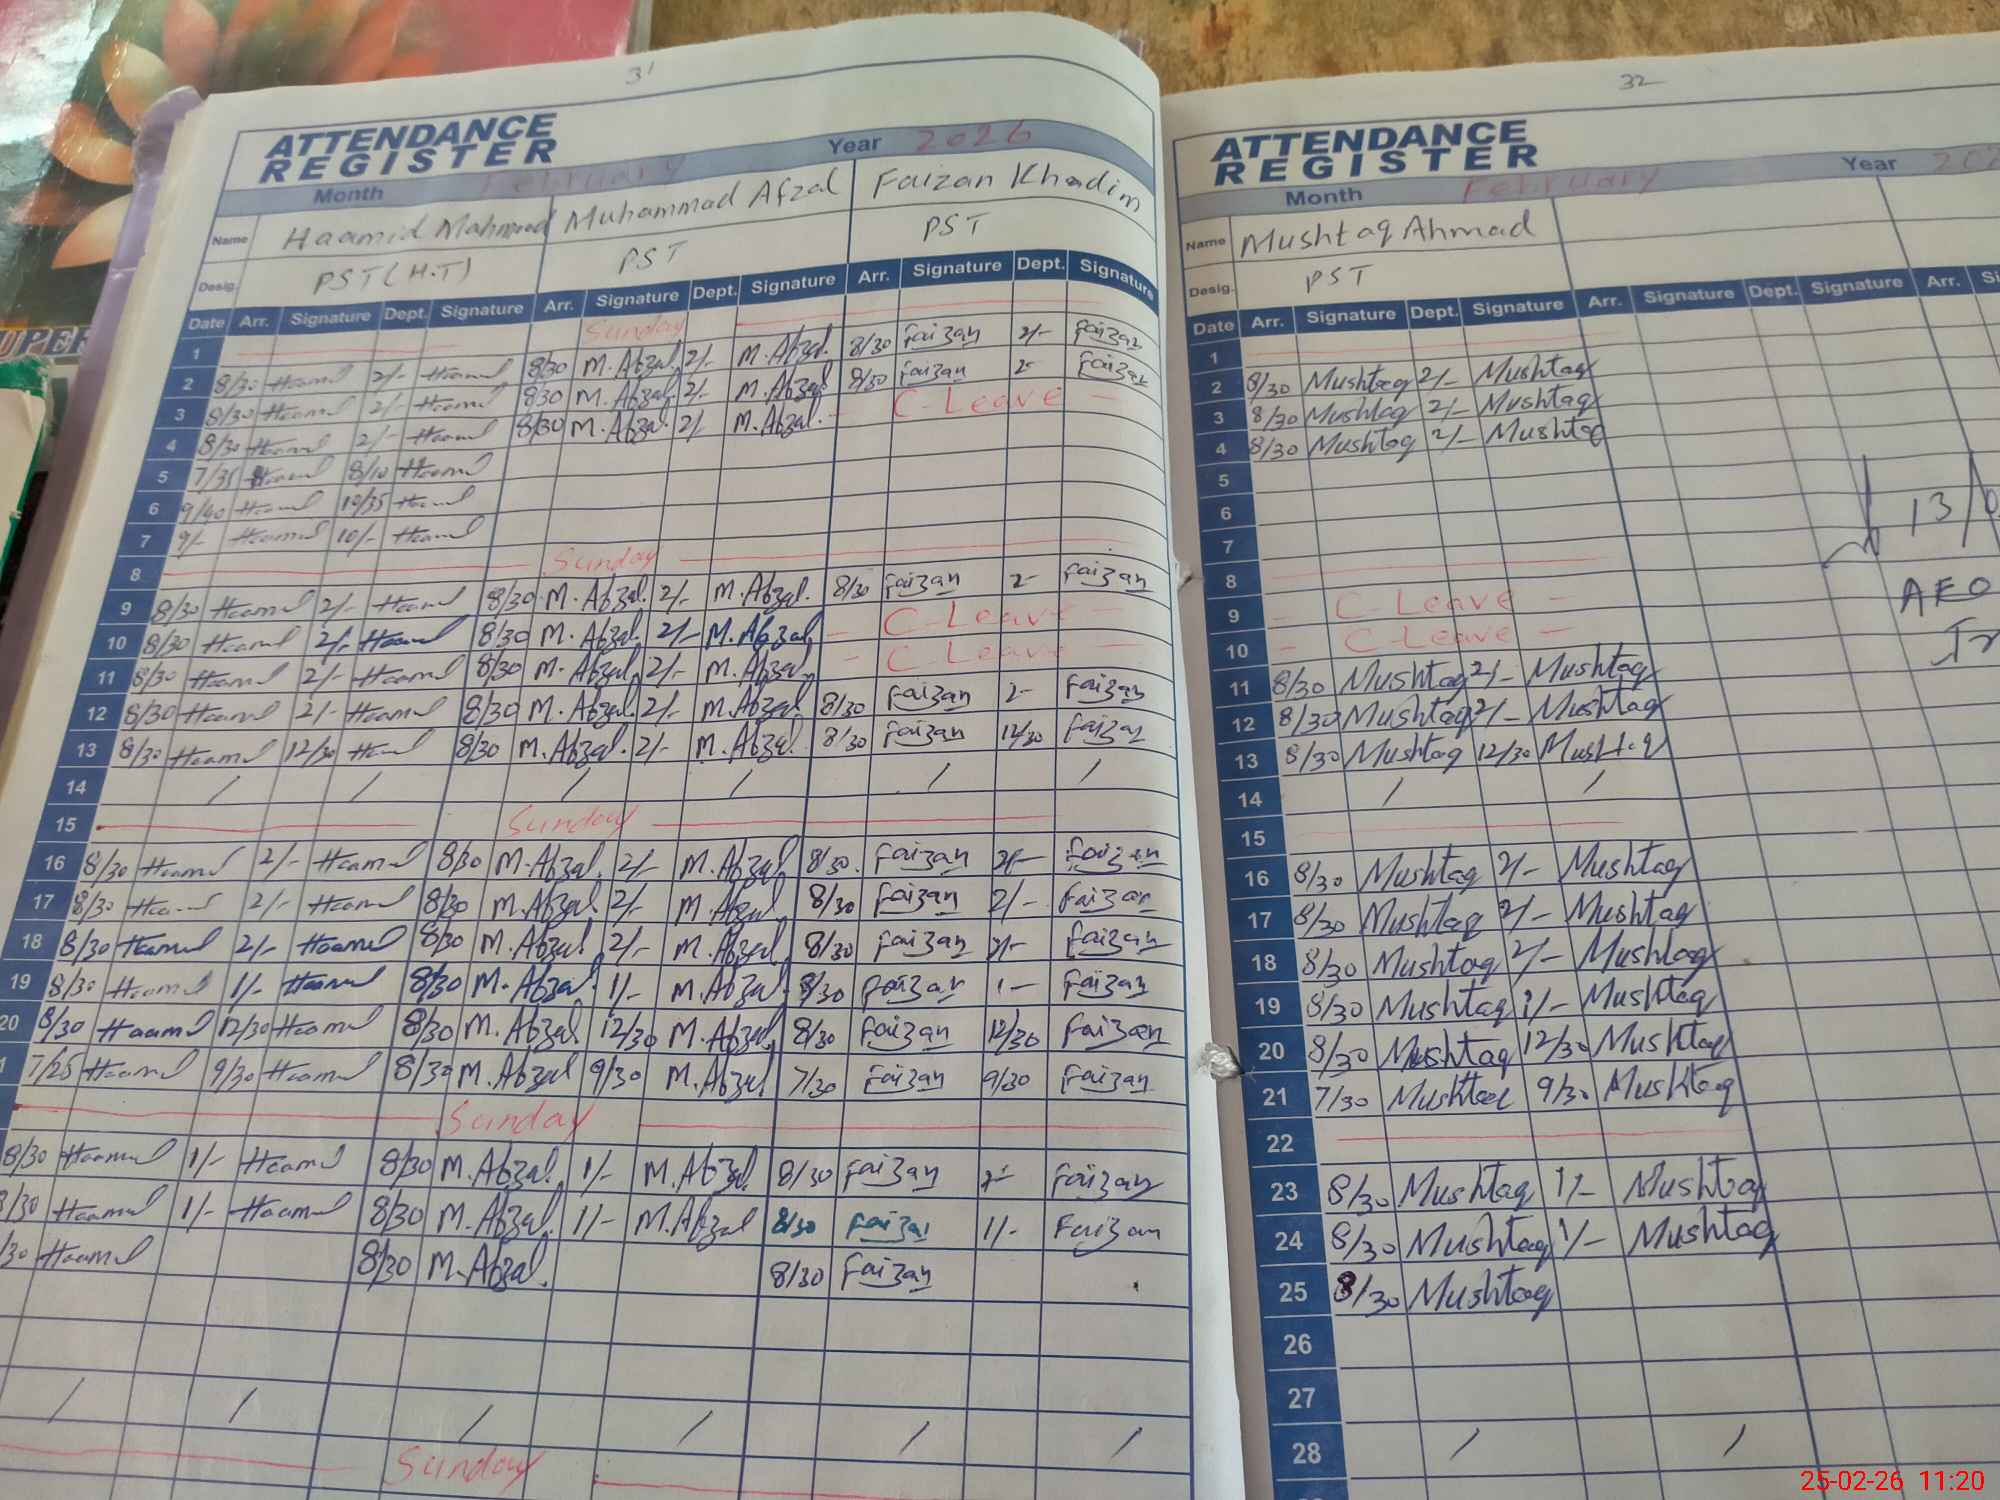 31
ATTENDANCE
REGISTER
Month February Year 2026
Name Haamid Mahmood Muhammad Afzal Faizan Khadim
Desig. PST (H.T) PST PST
Date Arr. Signature Dept. Signature Arr. Signature Dept. Signature Arr. Signature Dept. Signature
1 Sunday
2 8/30 Haamid 2/- Haamid 8/30 M. Afzal 2/- M. Afzal. 8/30 Faizan 2/- Faizan
3 8/30 Haamid 2/- Haamid 830 M. Afzal 2/- M. Afzal 8/30 Faizan 2- Faizan
4 8/30 Haamid 2/- Haamid 8/30 M. Afzal. 2/- M. Afzal. - C-Leave -
5 7/35 Haamid 8/10 Haamid
6 9/40 Haamid 10/35 Haamid
7 9/- Haamid 10/- Haamid
8 Sunday
9 8/30 Haamid 2/- Haamid 8/30 M. Afzal. 2/- M. Afzal. 8/30 Faizan 2- Faizan
10 8/30 Haamid 2/- Haamid 8/30 M. Afzal. 2/- M. Afzal. - C-Leave -
11 8/30 Haamid 2/- Haamid 8/30 M. Afzal. 2/- M. Afzal. - C Leave -
12 8/30 Haamid 2/- Haamid 8/30 M. Afzal. 2/- M. Afzal. 8/30 Faizan 2- Faizan
13 8/30 Haamid 12/30 Haamid 8/30 M. Afzal. 2/- M. Afzal. 8/30 Faizan 12/30 Faizan
14 / / / / / /
15 Sunday
16 8/30 Haamid 2/- Haamid 8/30 M. Afzal. 2/- M. Afzal. 8/30. Faizan 2/- Faizan
17 8/30 Haamid 2/- Haamid 8/30 M. Afzal. 2/- M. Afzal. 8/30 Faizan 2/- Faizan
18 8/30 Haamid 2/- Haamid 8/30 M. Afzal 2/- M. Afzal. 8/30 Faizan 2/- Faizan
19 8/30 Haamid 1/- Haamid 8/30 M. Afzal. 1/- M. Afzal. 8/30 Faizan 1- Faizan
20 8/30 Haamid 12/30 Haamid 8/30 M. Afzal 12/30 M. Afzal 8/30 Faizan 12/30 Faizan
1 7/25 Haamid 9/30 Haamid 8/30 M. Afzal 9/30 M. Afzal 7/30 Faizan 9/30 Faizan
Sunday
8/30 Haamid 1/- Haamid 8/30 M. Afzal. 1/- M. Afzal. 8/30 Faizan Faizan
8/30 Haamid 1/- Haamid 8/30 M. Afzal. 1/- M. Afzal 8/30 Faizan 1/- Faizan
/30 Haamid 8/30 M. Afzal. 8/30 Faizan
/ / / / / /
Sunday
32
ATTENDANCE
REGISTER
Month February Year 202
Name Mushtaq Ahmad
Desig. PST
Date Arr. Signature Dept. Signature Arr. Signature Dept. Signature Arr. Si
1
2 8/30 Mushtaq 2/- Mushtaq
3 8/30 Mushtaq 2/- Mushtaq
4 8/30 Mushtaq 2/- Mushtaq
5
6 13/0
7
8
9 - C-Leave - AEO
10 - C-Leave -
11 8/30 Mushtaq 2/- Mushtaq
12 8/30 Mushtaq 2/- Mushtaq
13 8/30 Mushtaq 12/30 Mushtaq
14 / /
15
16 8/30 Mushtaq 2/- Mushtaq
17 8/30 Mushtaq 2/- Mushtaq
18 8/30 Mushtaq 2/- Mushtaq
19 8/30 Mushtaq 1/- Mushtaq
20 8/30 Mushtaq 12/30 Mushtaq
21 7/30 Mushtaq 9/30 Mushtaq
22
23 8/30 Mushtaq 1/- Mushtaq
24 8/30 Mushtaq 1/- Mushtaq
25 8/30 Mushtaq
26
27
28 / /
25-02-26 11:20